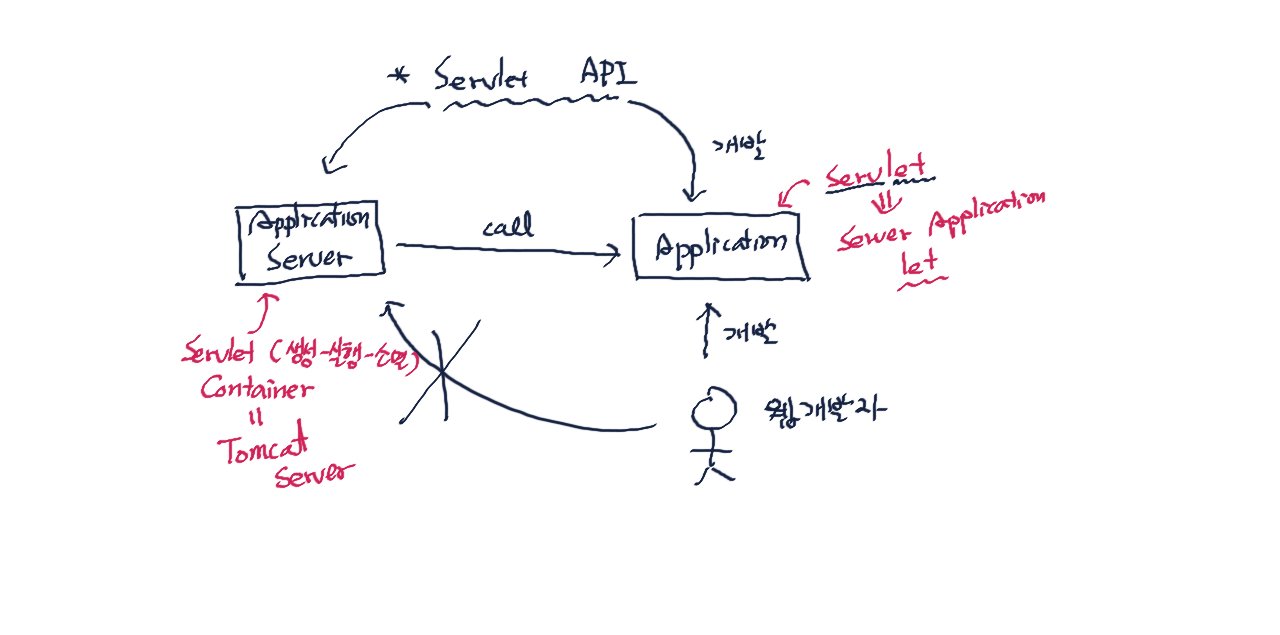 * Servlet API
개발
Servlet
||
Server Application
let
Application
Server
call
Application
Servlet (생성-실행-소멸)
Container
||
Tomcat
Server
개발
웹개발자